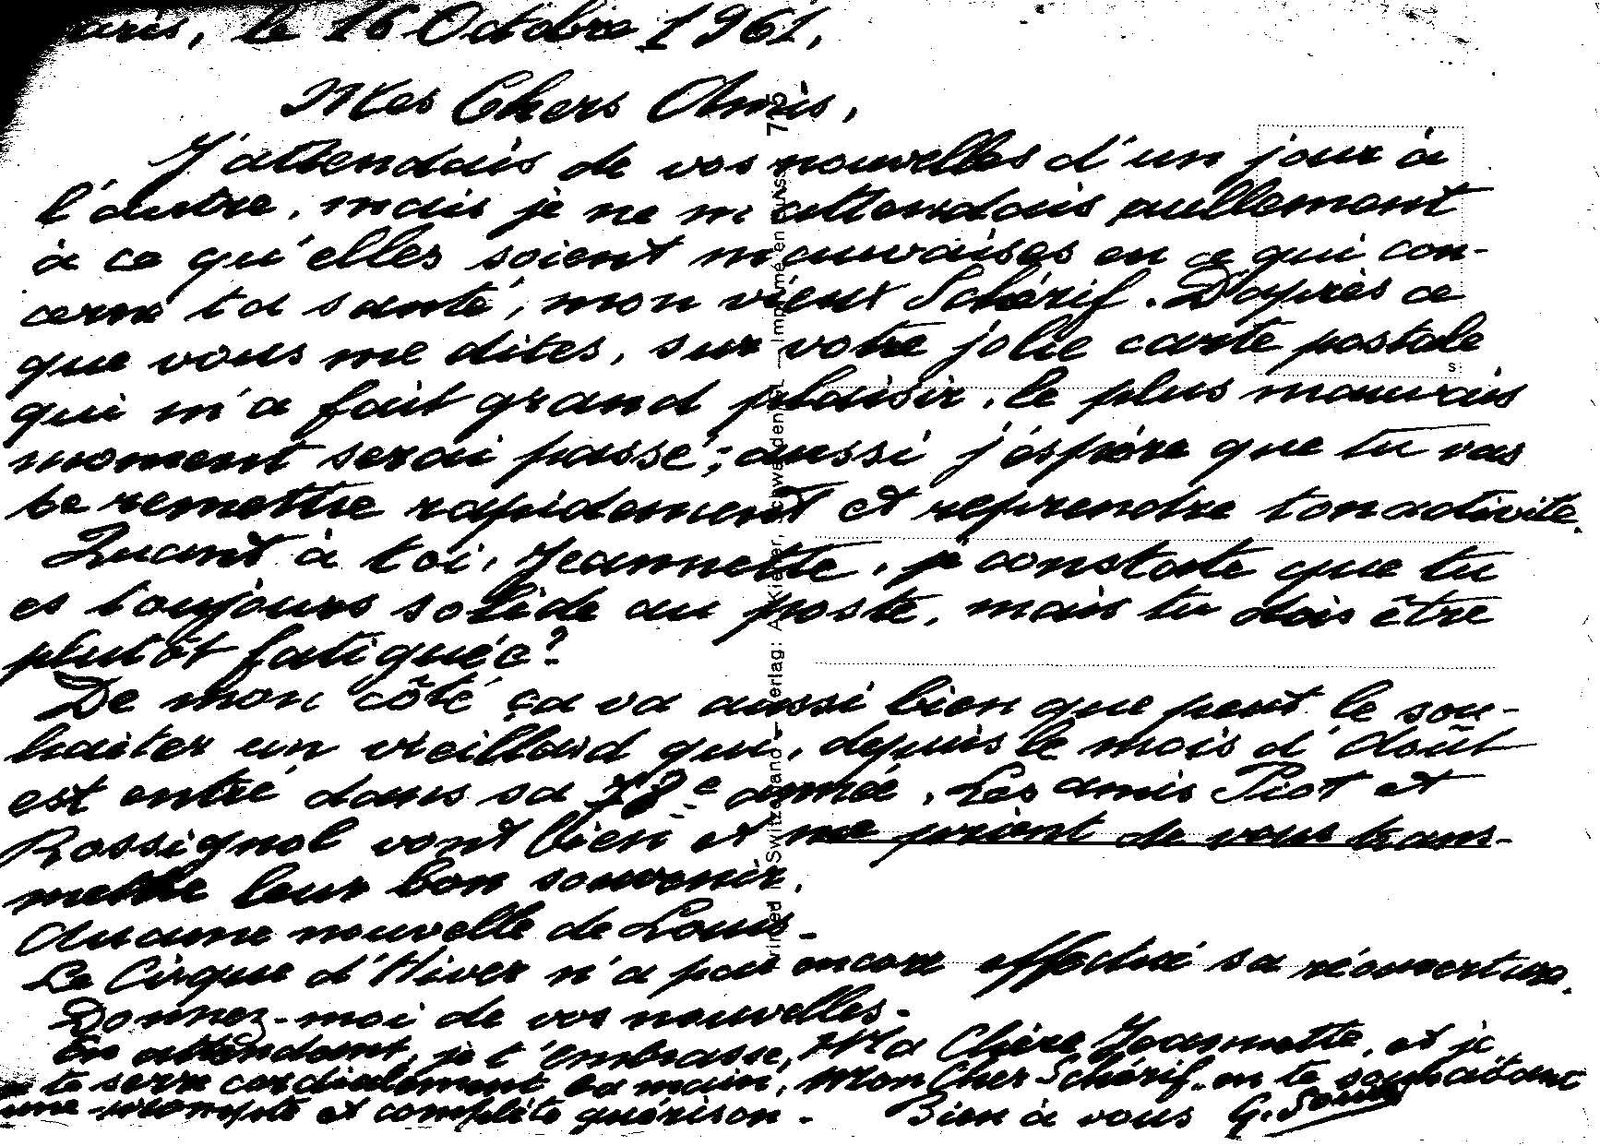 aris, le 16 Octobre 1961,
Mes Chers Amis,
J'attendais de vos nouvelles d'un jour à
l'autre, mais je ne m'attendais nullement
à ce qu'elles soient mauvaises en ce qui con-
cerne ta santé, mon vieux Schérif. D'après ce
que vous me dites, sur votre jolie carte postale
qui m'a fait grand plaisir, le plus mauvais
moment serai passé; aussi j'éspère que tu vas
te remettre rapidement et reprendre ton activité.
Quant à toi, Jeannette, je constate que tu
es toujours solide au poste, mais tu dois être
plutôt fatiguée?
De mon côté ça va aussi bien que peut le sou-
haiter un vieillard qui, depuis le mois d'Août
est entré dans sa 78e année. Les amis Piot et
Rossignol vont bien et me prient de vous trans-
mettre leur bon souvenir.
Aucune nouvelle de Louis.
Le Cirque d'Hiver n'a pas encore effectué sa réouverture.
Donnez-moi de vos nouvelles.
En attendant, je t'embrasse, Ma Chère Jeannette, et je
te serre cordialement la main, Mon Cher Schérif, en te souhaitant
une prompte et complète guérison.
Bien à vous G.
Printed in Switzerland – Verlag: A. Imprimé en Suisse
S